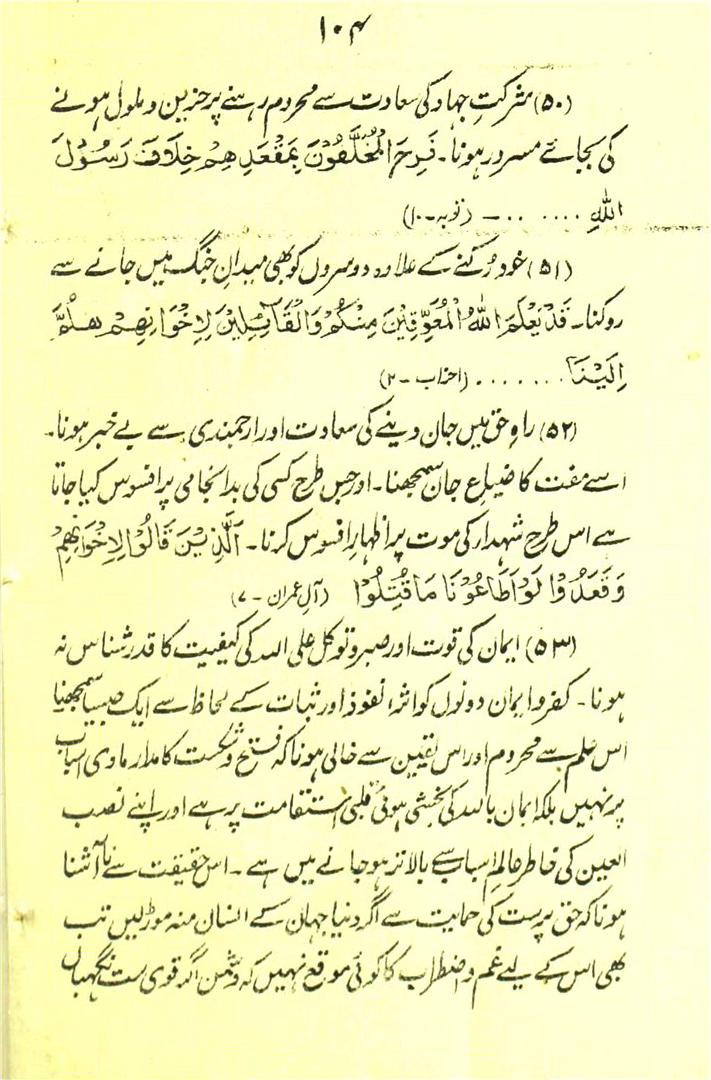 ۱۰۴
(۵۰) شرکتِ جہاد کی سعادت سے محروم رہنے پر حزین و ملول ہونے
کی بجائے مسرور ہونا۔ فَرِحَ الْمُخَلَّفُوْنَ بِمَقْعَدِهِمْ خِلَافَ رَسُوْلَ
اللّٰهِ .... ... ۔ (توبہ - ۱۰)
(۵۱) خود رُکنے کے علاوہ دوسروں کو بھی میدانِ جنگ میں جانے سے
روکنا۔ قَدْ يَعْلَمُ اللّٰهُ الْمُعَوِّقِيْنَ مِنْكُمْ وَالْقَائِلِيْنَ لِاِخْوَانِهِمْ هَلُمَّ
اِلَيْنَا ........ (احزاب - ۲)
(۵۲) راہِ حق میں جان دینے کی سعادت اور ارجمندی سے بے خبر ہونا۔
اسے مفت کا ضیاعِ جان سمجھنا۔ اور جس طرح کسی کی بدانجامی پر افسوس کیا جاتا
ہے اس طرح شہداء کی موت پر اظہارِ افسوس کرنا۔ اَلَّذِيْنَ قَالُوْا لِاِخْوَانِهِمْ
وَقَعَدُوْا لَوْ اَطَاعُوْنَا مَا قُتِلُوْا (آل عمران - ۷)
(۵۳) ایمان کی قوت اور صبر و توکل علی اللہ کی کیفیت کا قدر شناس نہ
ہونا۔ کفر و ایمان دونوں کو اثر، نفوذ اور ثبات کے لحاظ سے ایک جیسا سمجھنا
اس علم سے محروم اور اس یقین سے خالی ہونا کہ فتح و شکست کا مدار مادی اسباب
پر نہیں بلکہ ایمان باللہ کی بخشی ہوئی قلبی استقامت پر ہے اور اپنے نصب
العین کی خاطر عالمِ اسباب سے بالاتر ہو جانے میں ہے۔ اس حقیقت سے ناآشنا
ہونا کہ حق پرست کی حمایت سے اگر دنیا جہان کے انسان منہ موڑ لیں تب
بھی اس کے لیے غم و اضطراب کا کوئی موقع نہیں کہ دشمن اگر قوی ست نگہباں